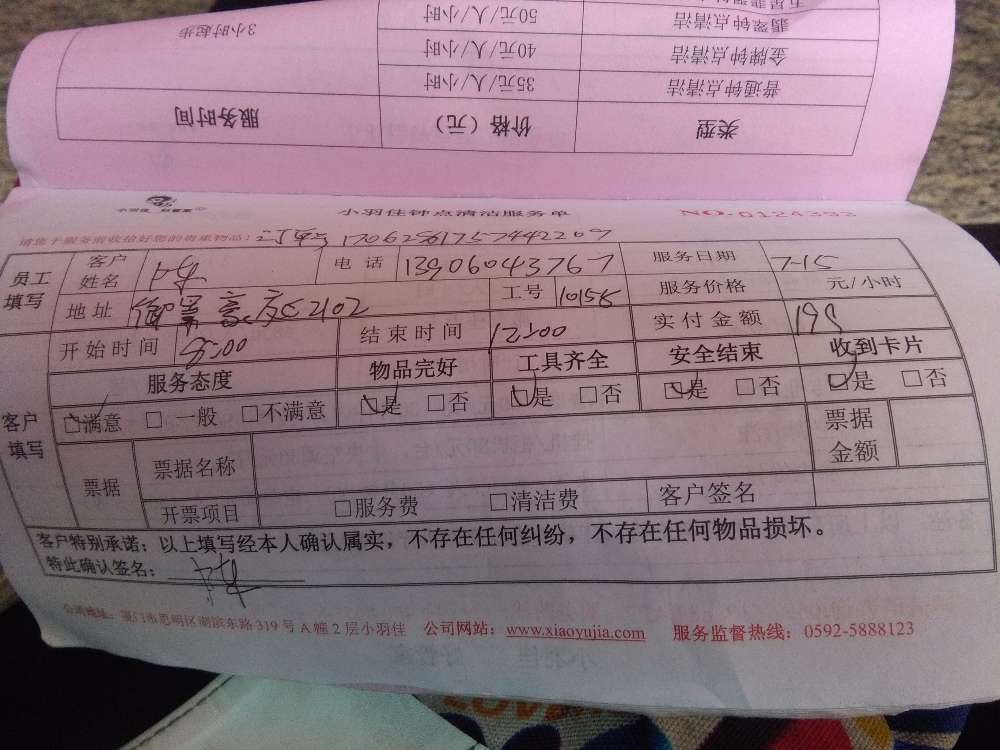 五星
翡翠钟点清洁 50元/人/小时
金牌钟点清洁 40元/人/小时 3小时起步
普通钟点清洁 35元/人/小时
类型 价格（元） 服务时间
小羽佳 好管家
小羽佳钟点清洁服务单 NO.0124392
请您于服务前收拾好您的贵重物品！订单号 17062561757442209
员工填写 客户姓名 陈 电话 13906043767 服务日期 7-15
地址 御景豪庭C2102 工号 10158 服务价格 元/小时
开始时间 8:00 结束时间 12:00 实付金额 198
客户填写 服务态度 物品完好 工具齐全 安全结束 收到卡片
☑满意 □一般 □不满意 ☑是 □否 ☑是 □否 ☑是 □否 ☑是 □否
票据 票据名称 票据金额
开票项目 □服务费 □清洁费 客户签名
客户特别承诺：以上填写经本人确认属实，不存在任何纠纷，不存在任何物品损坏。
特此确认签名：陈
公司地址：厦门市思明区湖滨东路319号A幢2层小羽佳 公司网站：www.xiaoyujia.com 服务监督热线：0592-5888123